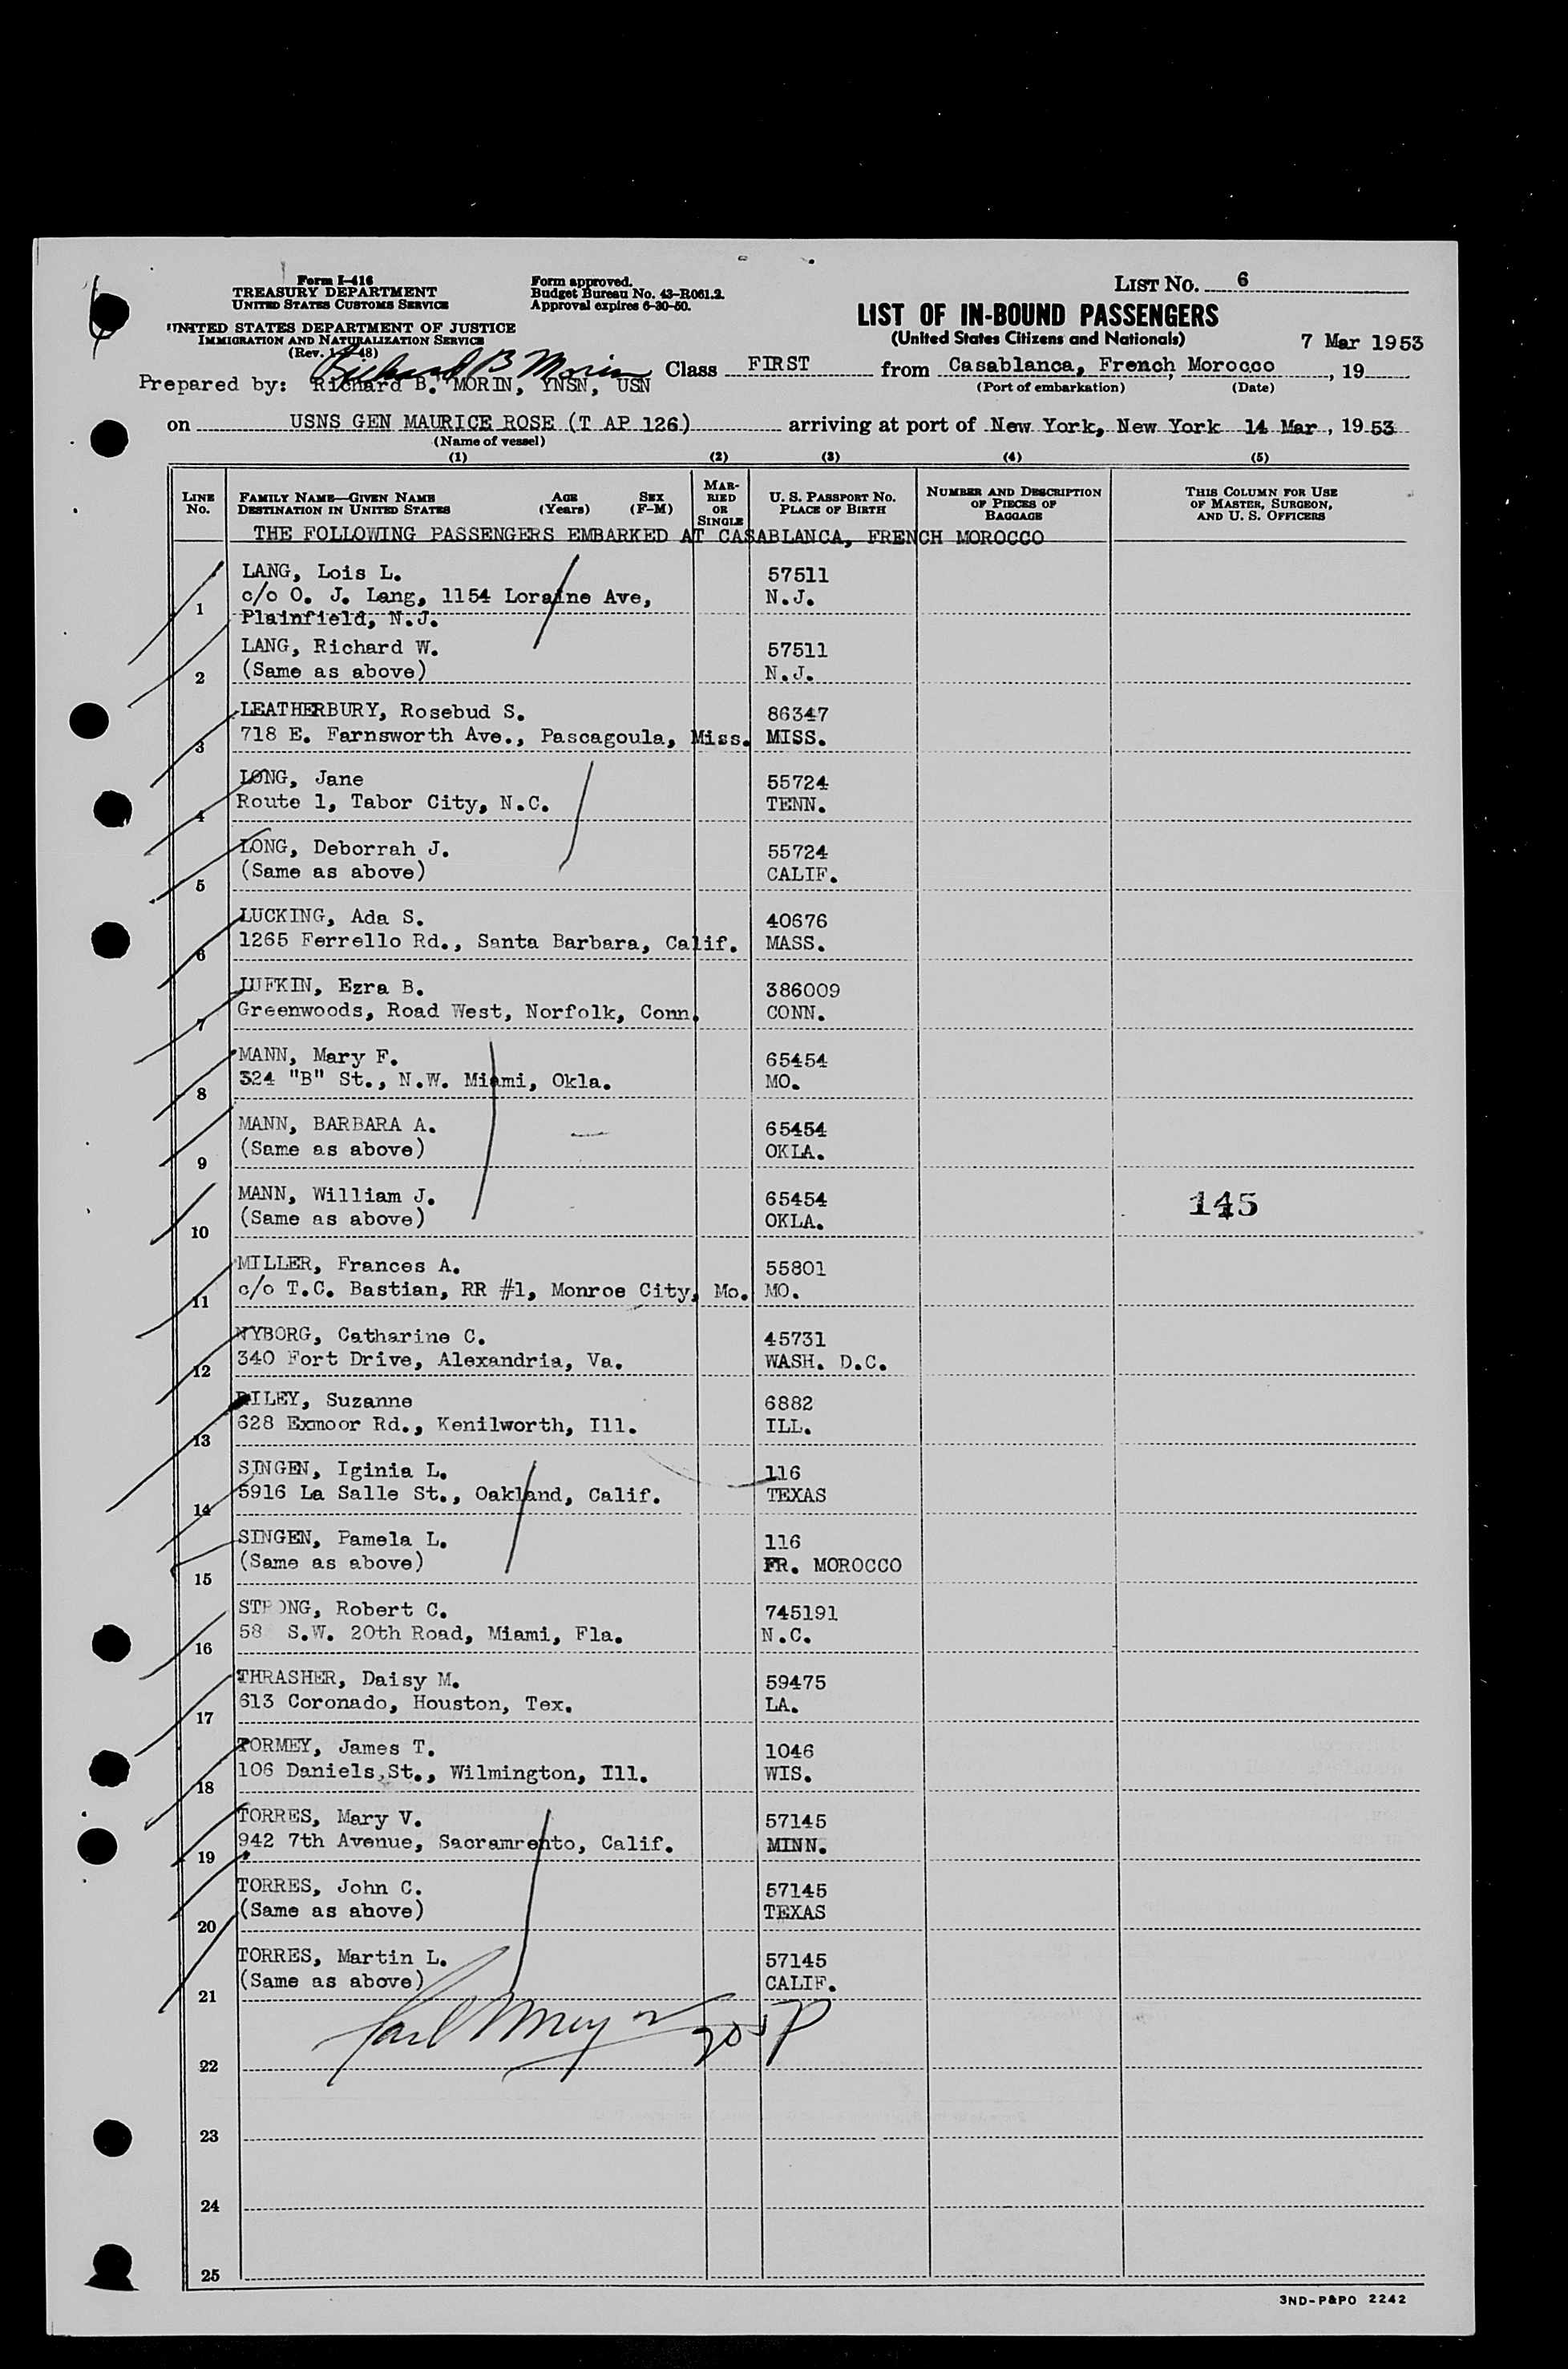 Form I-416
TREASURY DEPARTMENT
UNITED STATES CUSTOMS SERVICE
UNITED STATES DEPARTMENT OF JUSTICE
IMMIGRATION AND NATURALIZATION SERVICE
Form approved.
Budget Bureau No. 43-R061.2.
Approval expires 6-30-50.
LIST NO. 6
LIST OF IN-BOUND PASSENGERS
(United States Citizens and Nationals)
7 Mar 1953
Richard B Morin
Prepared by: Richard B. MORIN, YNSN, USN Class FIRST from Casablanca, French Morocco , 19
(Port of embarkation) (Date)
on USNS GEN MAURICE ROSE (T AP 126) arriving at port of New York, New York 14 Mar , 1953
(Name of vessel)
(1) (2) (3) (4) (5)
LINE NO. FAMILY NAME—GIVEN NAME DESTINATION IN UNITED STATES AGE (Years) SEX (F-M) MARRIED OR SINGLE U. S. PASSPORT NO. PLACE OF BIRTH NUMBER AND DESCRIPTION OF PIECES OF BAGGAGE THIS COLUMN FOR USE OF MASTER, SURGEON, AND U. S. OFFICERS
THE FOLLOWING PASSENGERS EMBARKED AT CASABLANCA, FRENCH MOROCCO
LANG, Lois L. 57511
1 c/o O. J. Lang, 1154 Loraine Ave, N.J.
Plainfield, N.J.
LANG, Richard W. 57511
2 (Same as above) N.J.
LEATHERBURY, Rosebud S. 86347
3 718 E. Farnsworth Ave., Pascagoula, Miss. MISS.
LONG, Jane 55724
4 Route 1, Tabor City, N.C. TENN.
LONG, Deborrah J. 55724
5 (Same as above) CALIF.
LUCKING, Ada S. 40676
6 1265 Ferrello Rd., Santa Barbara, Calif. MASS.
LUFKIN, Ezra B. 386009
7 Greenwoods, Road West, Norfolk, Conn. CONN.
MANN, Mary F. 65454
8 324 "B" St., N.W. Miami, Okla. MO.
MANN, BARBARA A. 65454
9 (Same as above) OKLA.
MANN, William J. 65454 145
10 (Same as above) OKLA.
MILLER, Frances A. 55801
11 c/o T.C. Bastian, RR #1, Monroe City, Mo. MO.
NYBORG, Catharine C. 45731
12 340 Fort Drive, Alexandria, Va. WASH. D.C.
RILEY, Suzanne 6882
13 628 Exmoor Rd., Kenilworth, Ill. ILL.
SINGEN, Iginia L. 116
14 5916 La Salle St., Oakland, Calif. TEXAS
SINGEN, Pamela L. 116
15 (Same as above) FR. MOROCCO
STRONG, Robert C. 745191
16 58 S.W. 20th Road, Miami, Fla. N.C.
THRASHER, Daisy M. 59475
17 613 Coronado, Houston, Tex. LA.
TORMEY, James T. 1046
18 106 Daniels St., Wilmington, Ill. WIS.
TORRES, Mary V. 57145
19 942 7th Avenue, Sacramrento, Calif. MINN.
TORRES, John C. 57145
20 (Same as above) TEXAS
TORRES, Martin L. 57145
21 (Same as above) CALIF.
22
23
24
25
3ND-P&PO 2242